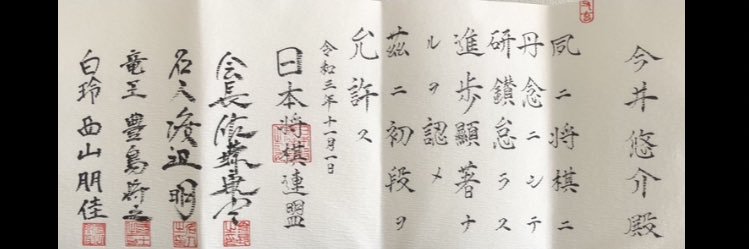 今井悠介殿
夙ニ将棋ニ
丹念ニシテ
研鑚怠ラス
進歩顯著ナ
ルヲ認メ
茲ニ初段ヲ
允許ス
令和三年十一月一日
日本将棋連盟
会長佐藤康光
名人渡辺明
竜王豊島将之
白玲西山朋佳